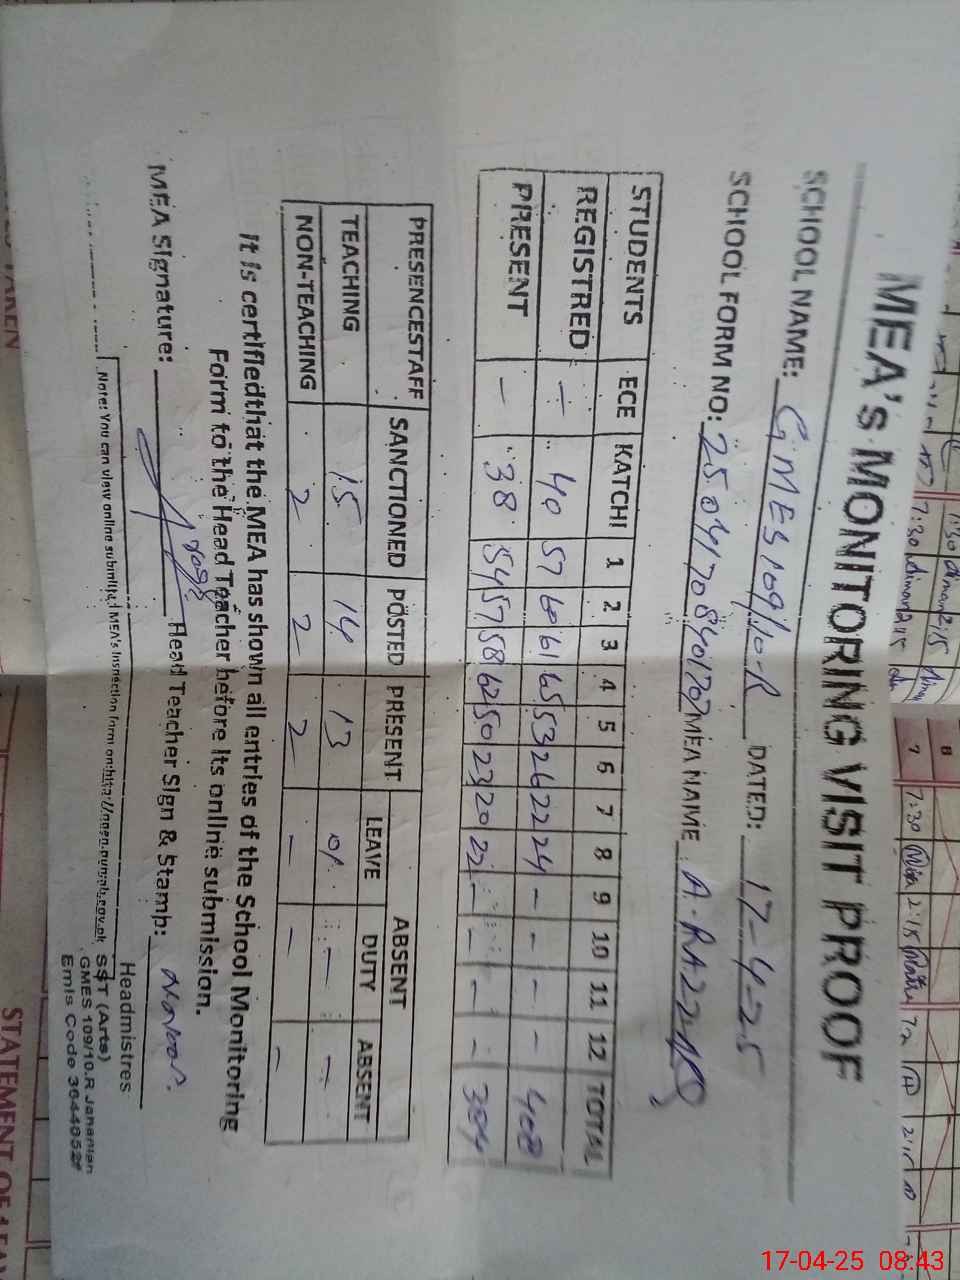 MEA's MONITORING VISIT PROOF
SCHOOL NAME: GMES 109/10-R DATED: 17-4-25
SCHOOL FORM NO: MEA NAME A. RAZZAQ
STUDENTS ECE KATCHI 1 2 3 4 5 6 7 8 9 10 11 12 TOTAL
REGISTRED - 40 57 60 61 65 53 26 22 24 - - - - 408
PRESENT - 38 54 57 58 62 50 23 20 22 - - - - 384
PRESENCESTAFF SANCTIONED POSTED PRESENT ABSENT
LEAVE DUTY ABSENT
TEACHING 15 14 13 01 - -
NON-TEACHING 2 2 2 - - -
It is certifiedthat the MEA has shown all entries of the School Monitoring
Form to the Head Teacher before its online submission.
MEA Signature: Head Teacher Sign & Stamb:
Note: You can view online submitted MEA's Inspection form on
Headmistres
SST (Arts)
GMES 109/10.R Jahanian
Emis Code
7:30 2:15
7:30 2:15
7 8
7:30 2:15
STATEMENT OF LEAV
17-04-25 08:43